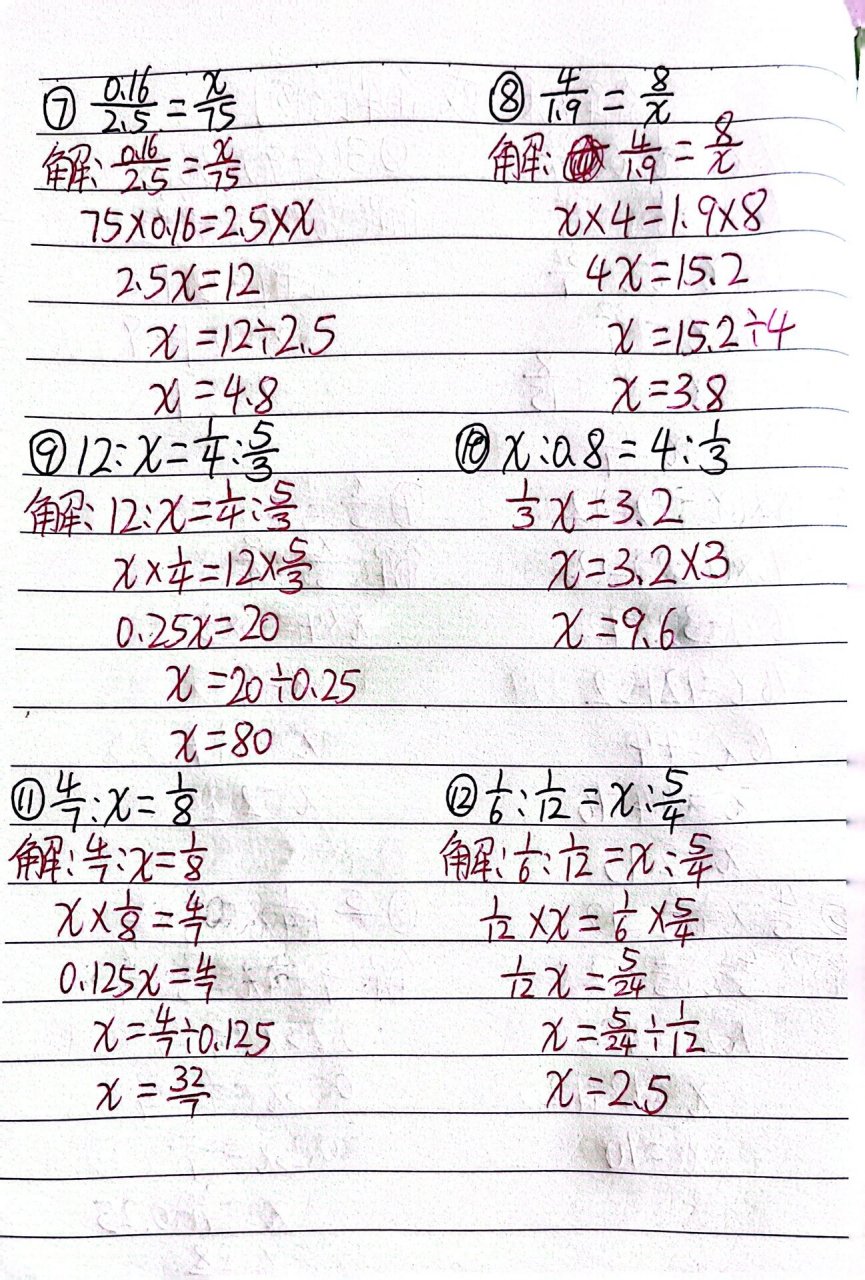 ⑦ 0.16/2.5 = x/75
解: 0.16/2.5 = x/75
75×0.16=2.5×x
2.5x=12
x=12÷2.5
x=4.8
⑧ 4/1.9 = 8/x
解: 4/1.9 = 8/x
x×4=1.9×8
4x=15.2
x=15.2÷4
x=3.8
⑨ 12:x=1/4:5/3
解: 12:x=1/4:5/3
x×1/4=12×5/3
0.25x=20
x=20÷0.25
x=80
⑩ x:0.8=4:1/3
1/3x=3.2
x=3.2×3
x=9.6
⑪ 4/7:x=1/8
解: 4/7:x=1/8
x×1/8=4/7
0.125x=4/7
x=4/7÷0.125
x=32/7
⑫ 1/6:1/12=x:5/4
解: 1/6:1/12=x:5/4
1/12×x=1/6×5/4
1/12x=5/24
x=5/24÷1/12
x=2.5